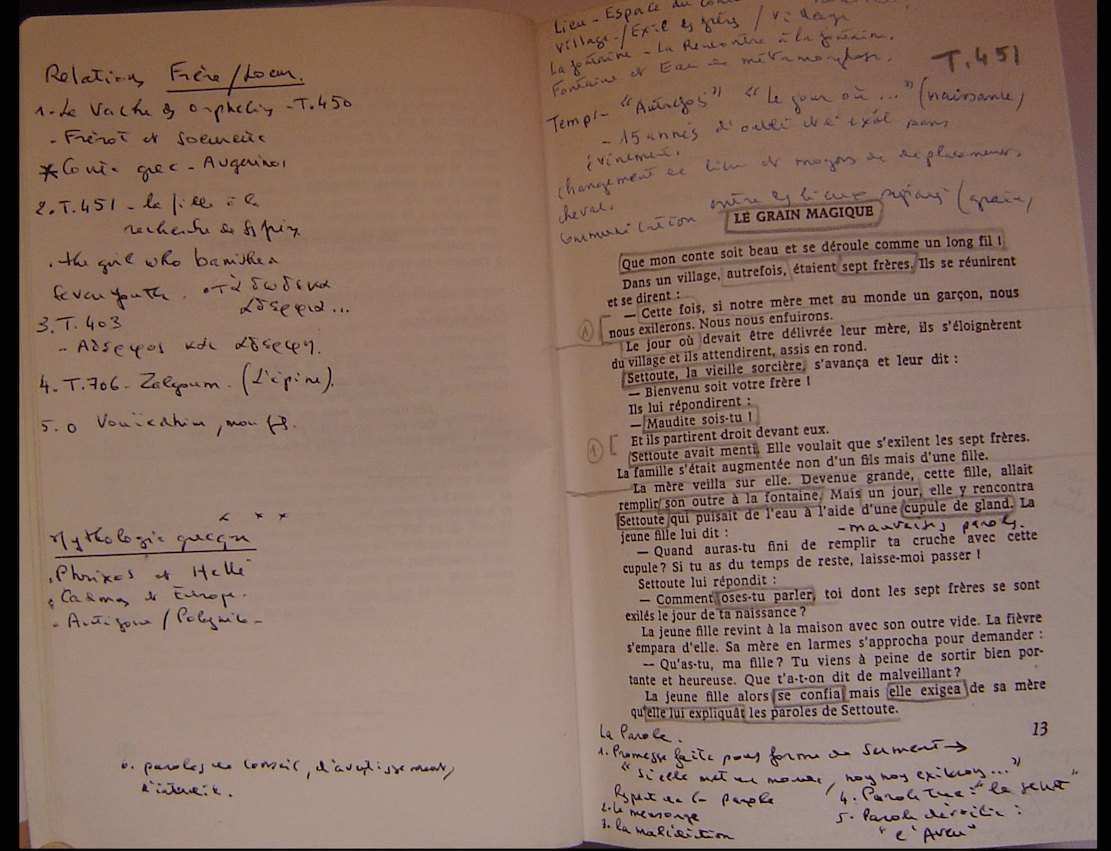 Relations Frère/Soeur.
1- La Vache des orphelins - T.450
- Frérot et Soeurette
* Conte grec - Augerinos
2. T.451 - la fille à la
recherche de ses frères
. the girl who banished
seven youths. . Τα δωδεκα
αδερφια...
3. T.403
- Αδερφος και αδερφη.
4. T.706 - Zalgoum. (L'épine).
5. O Vouïedhim, mon fils.
* * *
Mythologie grecque
. Phrixos et Hellé
. Cadmos et Europe.
- Antigone / Polynice -
6. paroles de conseil, d'avertissement,
d'interdit.
Lieu - Espace du conte
Village / Exil des frères / village
La fontaine - La Rencontre à la fontaine.
Fontaine et Eau de métamorphose.
T.451
Temps - "Autrefois" "Le jour où..." (naissance)
- 15 années d'oubli et d'exil sans
évènement.
changement de lieu et moyens de déplacement,
cheval.
Communication entre les lieux (grain,
LE GRAIN MAGIQUE
Que mon conte soit beau et se déroule comme un long fil !
Dans un village, autrefois, étaient sept frères. Ils se réunirent
et se dirent :
— Cette fois, si notre mère met au monde un garçon, nous
nous exilerons. Nous nous enfuirons.
1
Le jour où devait être délivrée leur mère, ils s'éloignèrent
du village et ils attendirent, assis en rond.
Settoute, la vieille sorcière, s'avança et leur dit :
— Bienvenu soit votre frère !
Ils lui répondirent :
— Maudite sois-tu !
Et ils partirent droit devant eux.
1
Settoute avait menti. Elle voulait que s'exilent les sept frères.
La famille s'était augmentée non d'un fils mais d'une fille.
La mère veilla sur elle. Devenue grande, cette fille, allait
remplir son outre à la fontaine. Mais un jour, elle y rencontra
Settoute qui puisait de l'eau à l'aide d'une cupule de gland. La
jeune fille lui dit :
- mauvaises paroles.
— Quand auras-tu fini de remplir ta cruche avec cette
cupule ? Si tu as du temps de reste, laisse-moi passer !
Settoute lui répondit :
— Comment oses-tu parler, toi dont les sept frères se sont
exilés le jour de ta naissance ?
La jeune fille revint à la maison avec son outre vide. La fièvre
s'empara d'elle. Sa mère en larmes s'approcha pour demander :
— Qu'as-tu, ma fille ? Tu viens à peine de sortir bien por-
tante et heureuse. Que t'a-t-on dit de malveillant ?
La jeune fille alors se confia mais elle exigea de sa mère
qu'elle lui expliquât les paroles de Settoute.
13
La Parole.
1. Promesse faite sous forme de Serment →
"Si elle met au monde, nous nous exilerons..."
Respect de la parole
2. le mensonge
3. la malédiction
4. Parole tue : "le secret"
5. Parole dévoilée :
"l'Aveu"